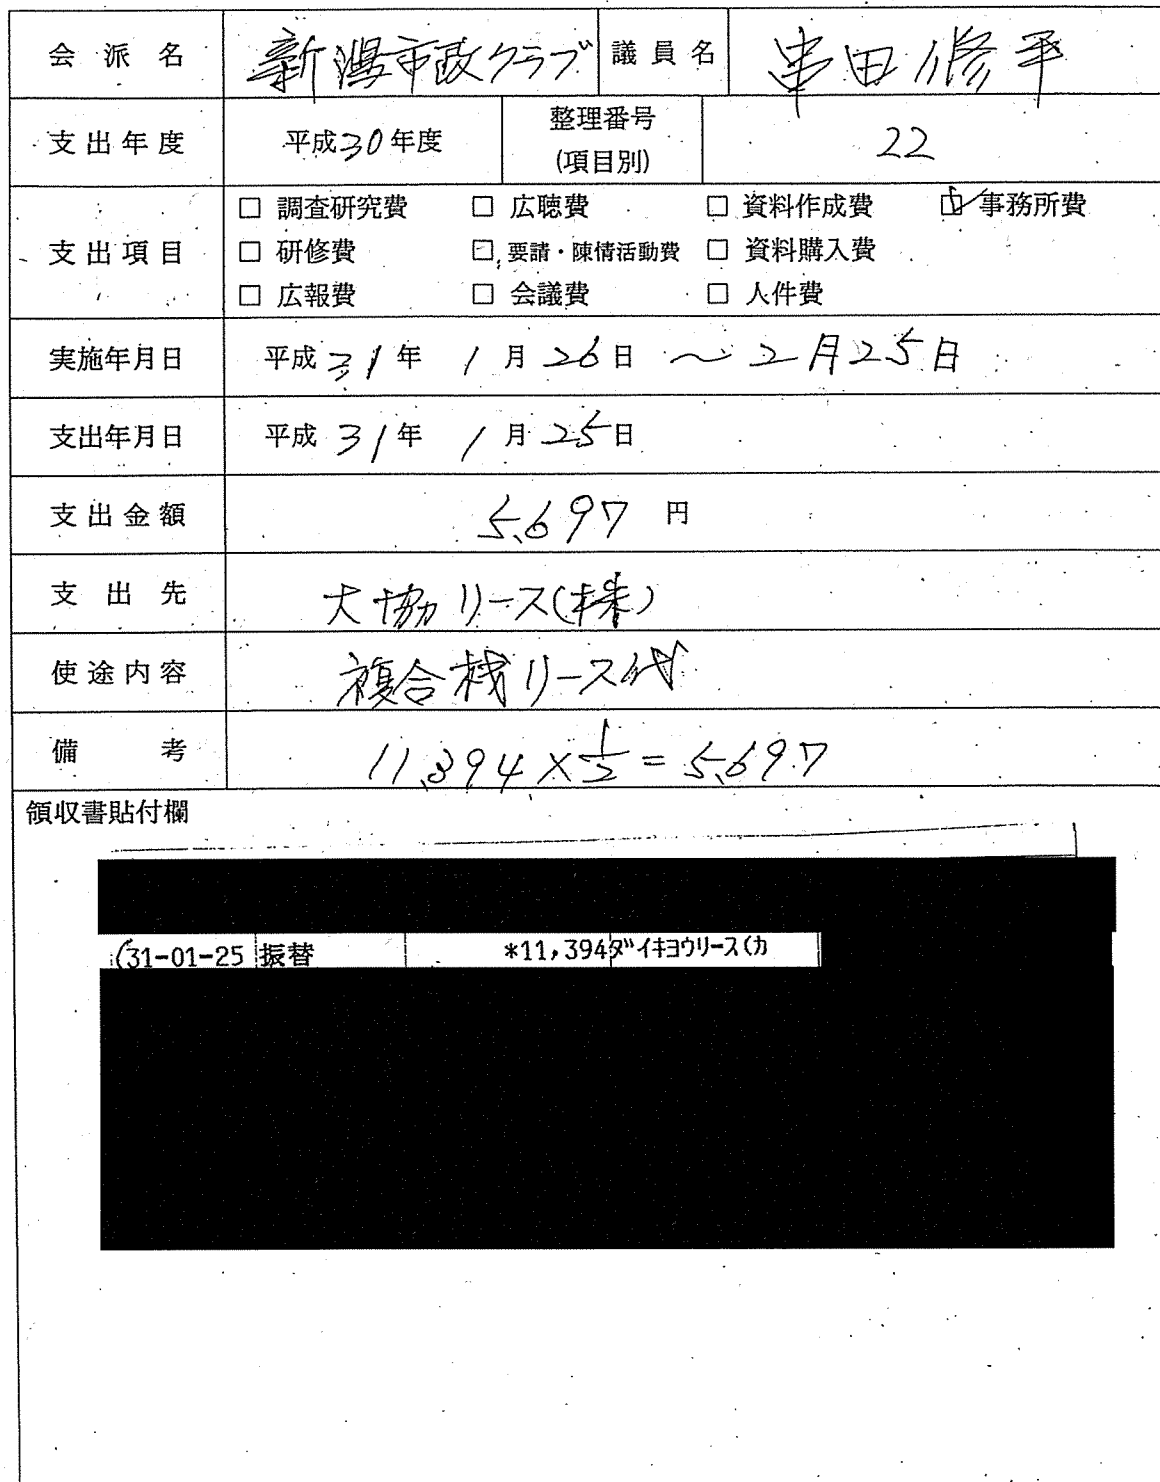 会派名 新潟市政クラブ 議員名 串田修平
支出年度 平成30年度 整理番号(項目別) 22
支出項目
□ 調査研究費 □ 広聴費 □ 資料作成費 ☑ 事務所費
□ 研修費 □ 要請・陳情活動費 □ 資料購入費
□ 広報費 □ 会議費 □ 人件費
実施年月日 平成31年1月26日 ~2月25日
支出年月日 平成31年1月25日
支出金額 5,697 円
支出先 大協リース(株)
使途内容 複合機リース代
備考 11,394×1/2=5,697
領収書貼付欄
31-01-25 振替 *11,394 ダイキヨウリース(カ